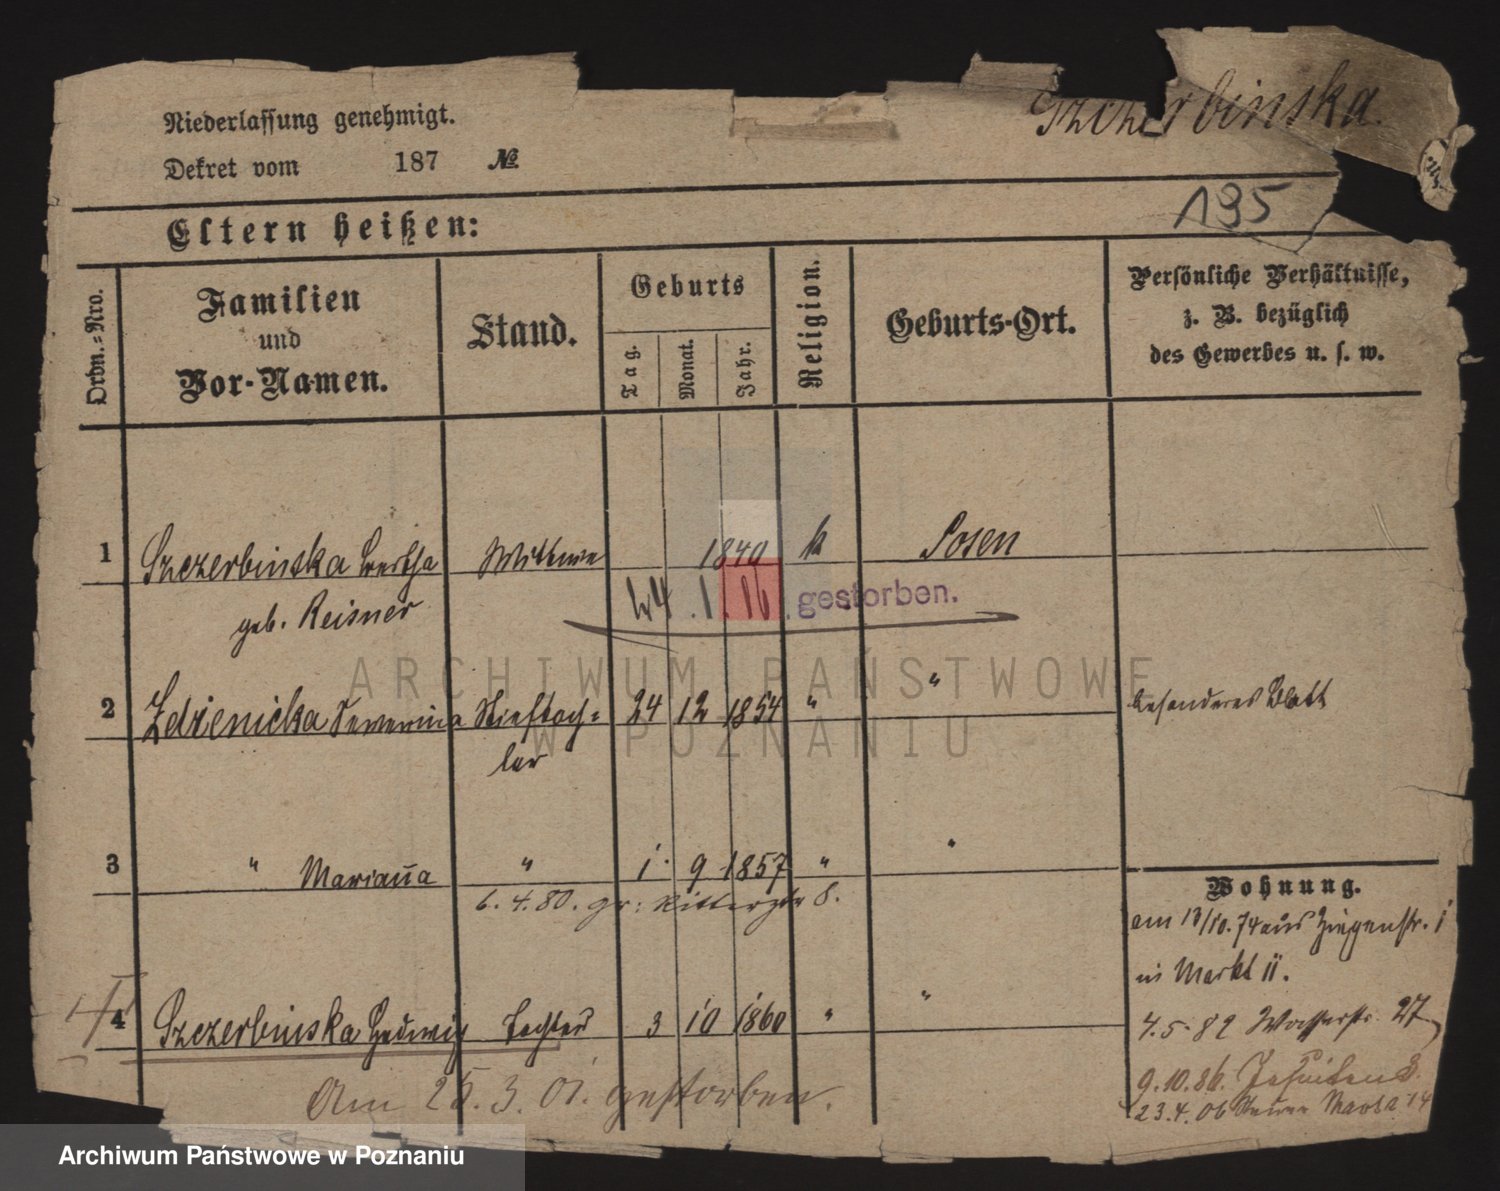 Niederlassung genehmigt.
Dekret vom 187 №
Szczerbinska.
195
Eltern heißen:
Ordn.-Nro.
Familien
und
Vor-Namen.
Stand.
Geburts
Tag.
Monat.
Jahr.
Religion.
Geburts-Ort.
Persönliche Verhältnisse,
z. B. bezüglich
des Gewerbes u. s. w.
1 Szczerbinska Bertha Wittwe 1840 k Posen
geb. Reisner
1. 16. gestorben.
ARCHIWUM PAŃSTWOWE
W POZNANIU
2 Zdzienicka Severina Stieftoch- 24 12 1854 " " besonderes Blatt
ter
3 " Marianna " 1. 9 1857 " "
6. 4. 80. gr: Ritterstr 8.
Wohnung.
am 13/10. 74 aus Ziegenstr. 1
in Markt 11.
4 Szczerbinska Hedwig Tochter 3 10 1860 " "
4.5.82 Wasserstr. 27
Am 25. 3. 01. gestorben.
9.10.86. Jesuiten 3.
23.4.06 Neuer Markt 14
Archiwum Państwowe w Poznaniu